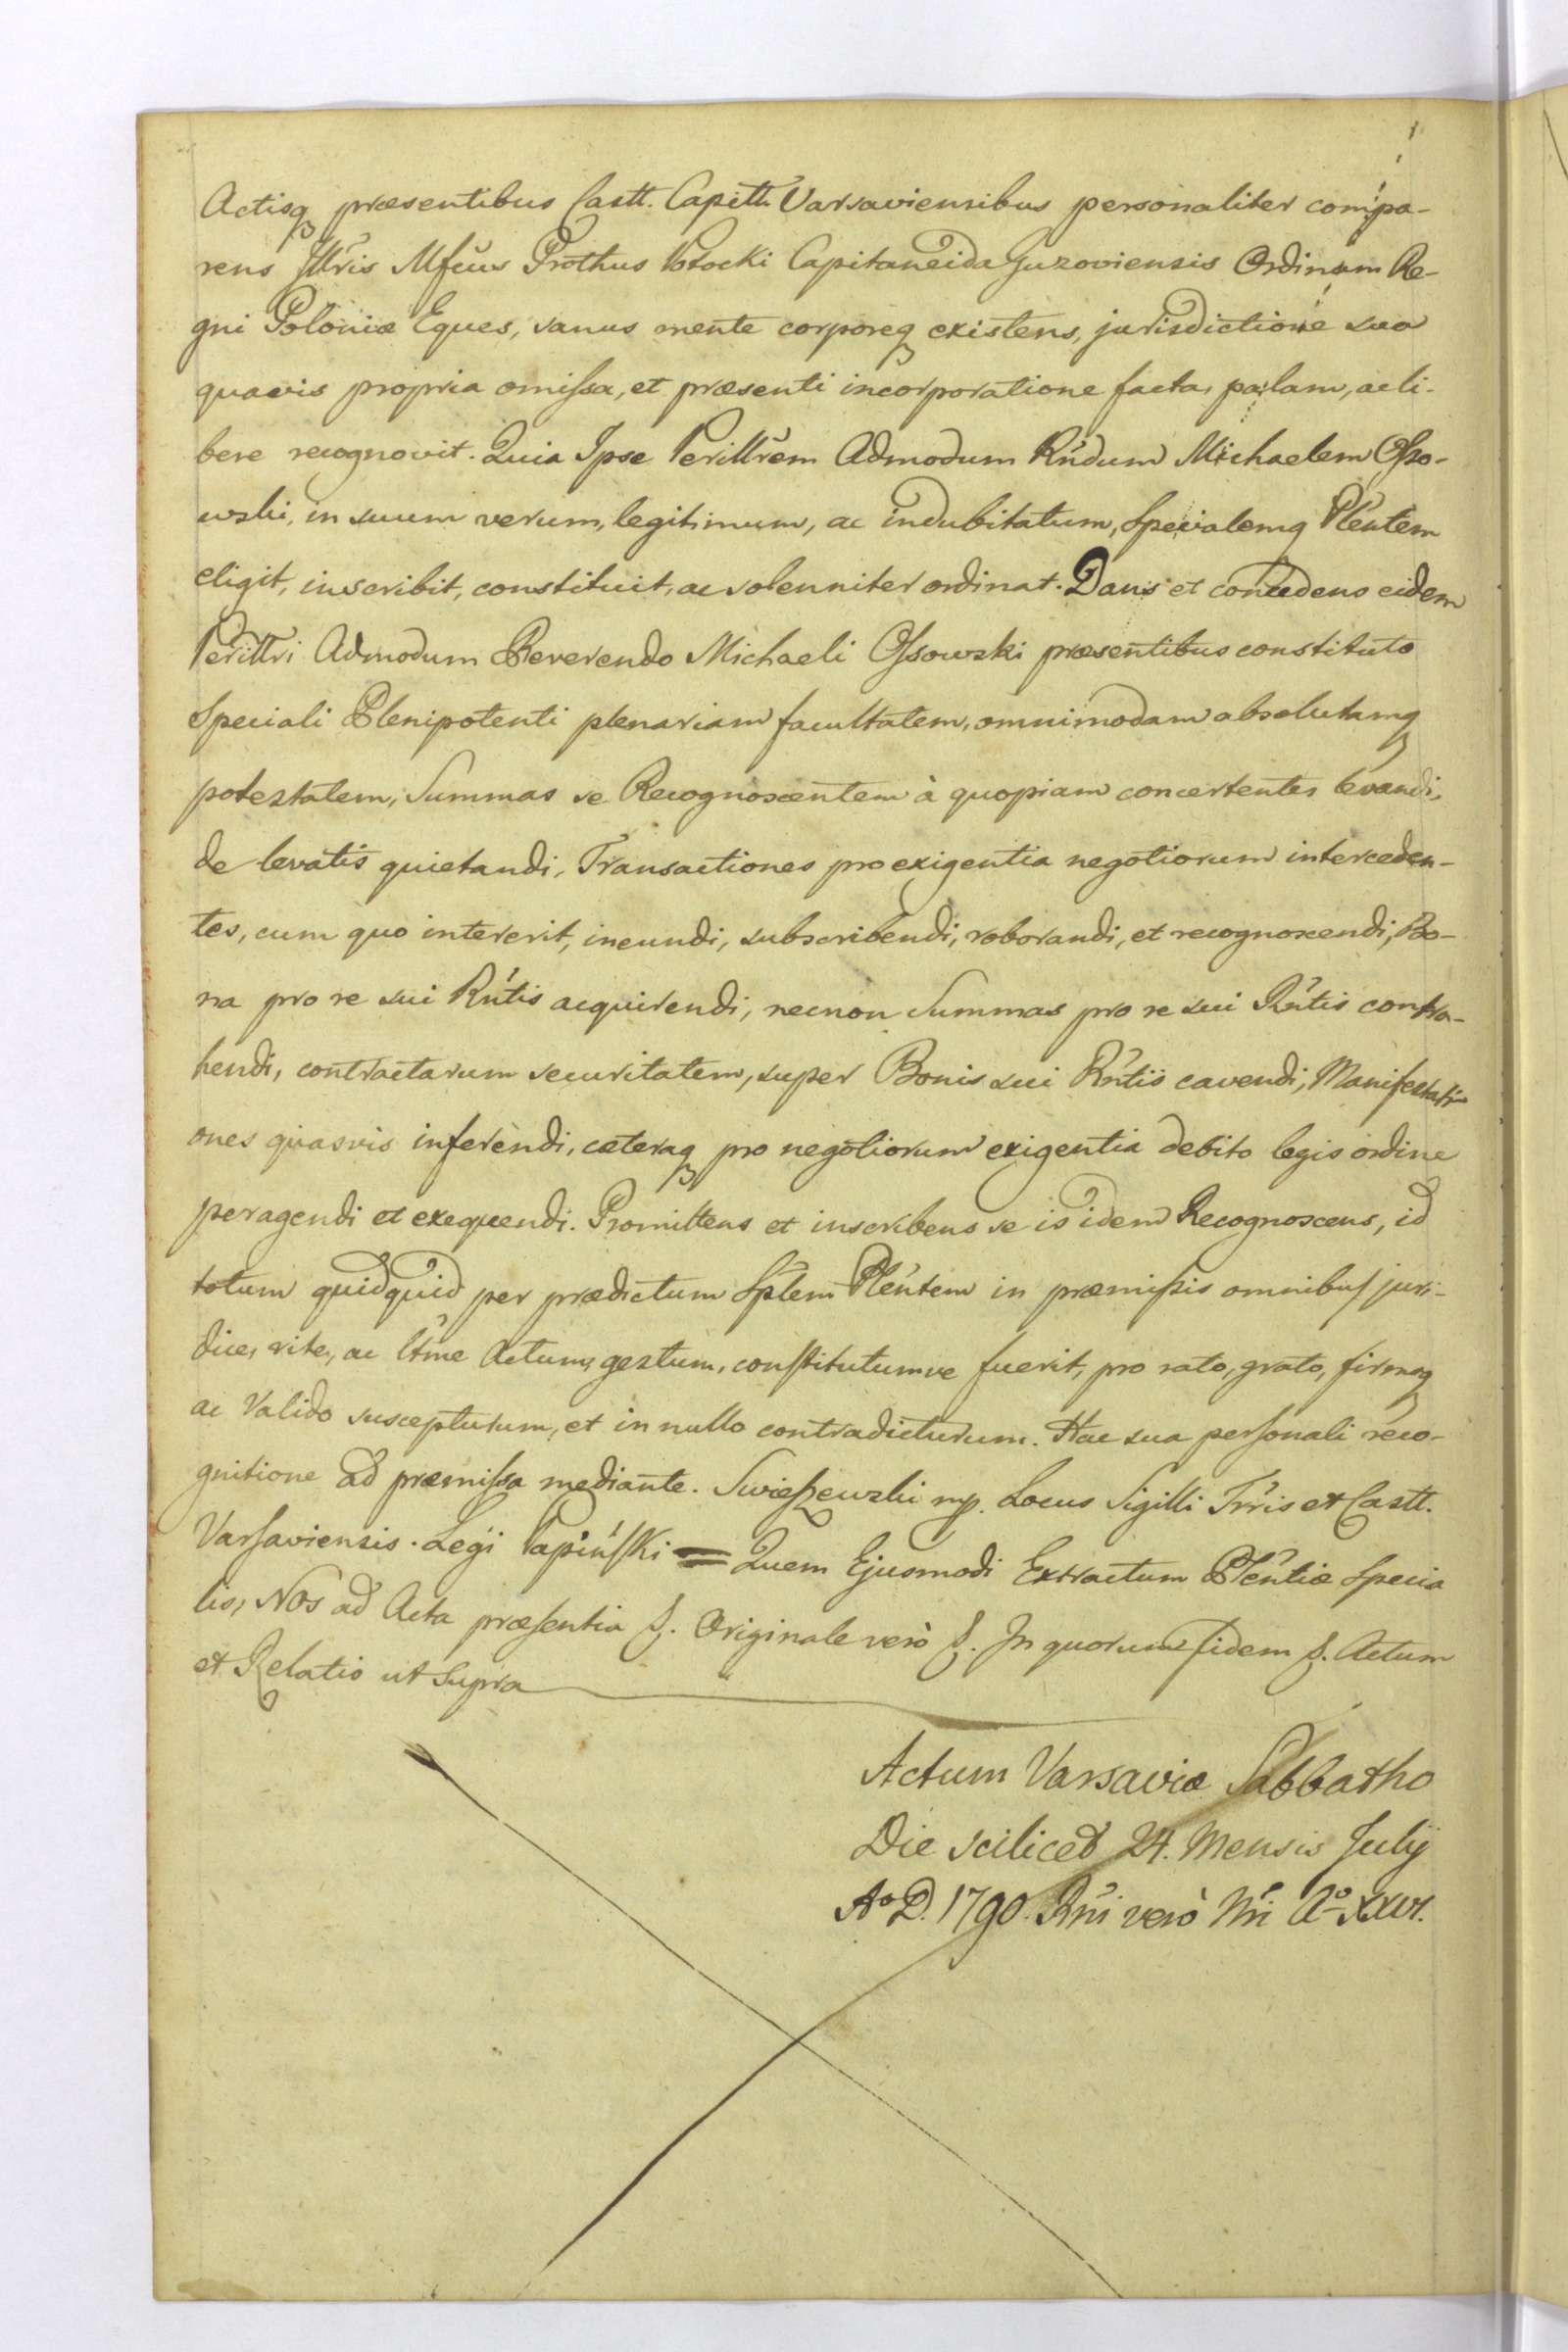 Actisq præsentibus Castt. Capitt. Varsaviensibus personaliter compa-
rens Jllr̃is Mfcus Prothus Potocki Capitaneida Guzoviensis Ordinum Re-
gni Poloniæ Eques, sanus mente corporeq existens, jurisdictione sua
quavis propria omiſsa, et præsenti incorporatione facta, palam, ac li-
bere recognovit. Quia Ipse Perillr̃em Admodum Rńdum Michaelem Oſso-
wski, in suum verum, legitimum, ac indubitatum, Specialemq Pleńtem
eligit, inscribit, constituit, ac solenniter ordinat. Dans et concedens eidem
Perillri Admodum Reverendo Michaeli Oſsowski præsentibus constituto
Speciali Plenipotenti plenariam facultatem, omnimodam absolutamq
potestatem, Summas se Recognoscentem à quopiam concertentes levandi,
de levatis quietandi, Transactiones pro exigentia negotiorum interceden-
tes, cum quo intererit, ineundi, subscribendi, roborandi, et recognoscendi, Bo-
na pro re sui Rńtis acquirendi, necnon Summas pro re sui Rńtis contra-
hendi, contractarum securitatem, super Bonis sui Rńtis cavendi, Manifestati-
ones quasvis inferendi, cæteraq pro negotiorum exigentia debito legis ordine
peragendi et exequendi. Promittens et inscribens se is idem Recognoscens, id
totum quidquid per prædictum Sṕlem Pleńtem in præmiſsis omnibuſ juri-
dice, rite, ac ltme Actum, gestum, conſtitutumve fuerit, pro rato, grato, firmoq
ac Valido suscepturum, et in nullo contradicturum. Hac sua perſonali reco-
gnitione ad præmiſsa mediante. Swieſzewski mp. Locus Sigilli Tr̃ris et Castt.
Varſaviensis. Legi Łapińſki = Quem Ejusmodi Extractum Pleńtiæ Specia
lis, Nos ad Acta præſentia &. Originale verò &. Jn quorum fidem &. Actum
et Relatio ut Supra
Actum Varsaviæ Sabbatho
Die scilicet 24. Mensis Julÿ
Aº D. 1790. Rńi verò Nri Aº XXVI.